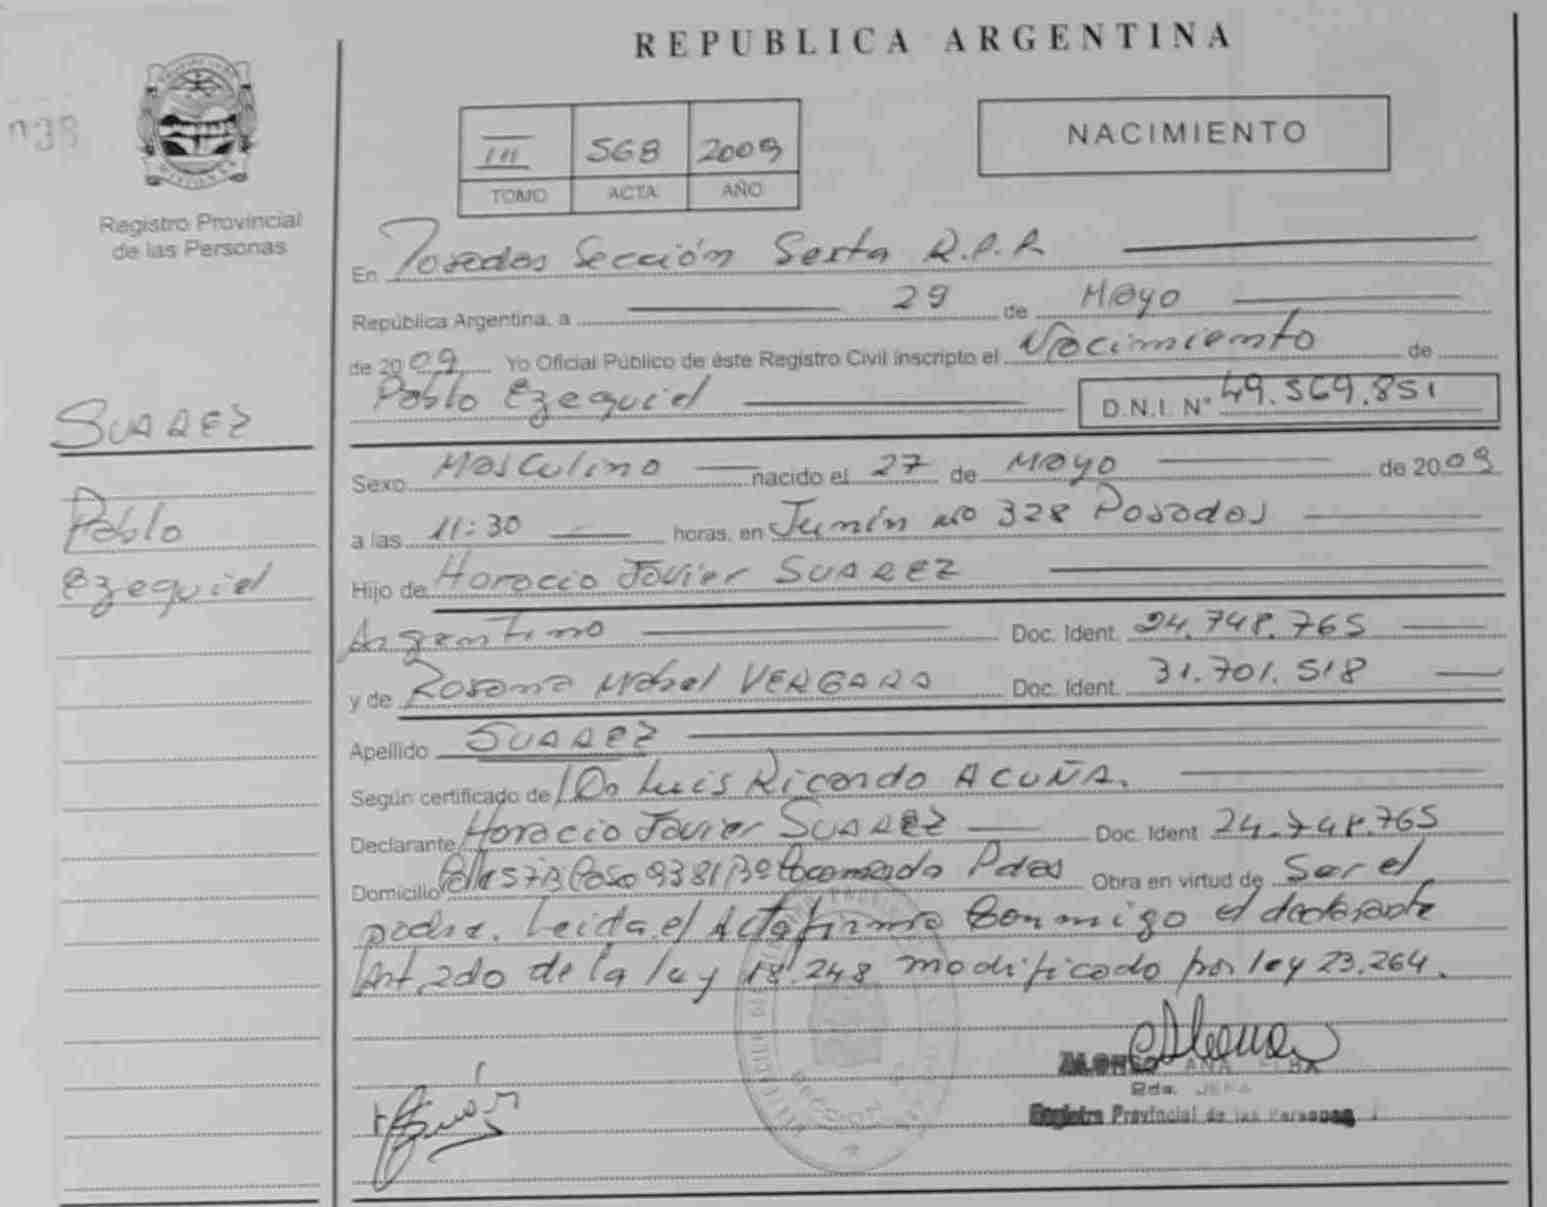 REPUBLICA ARGENTINA
038
III 568 2009
TOMO ACTA AÑO
NACIMIENTO
Registro Provincial
de las Personas
En Posadas Sección Sexta R.P.P.
República Argentina, a 29 de Mayo
de 2009 Yo Oficial Público de éste Registro Civil inscripto el Nacimiento de
Pablo Ezequiel D.N.I. N° 49.569.851
SUAREZ
Pablo
Ezequiel
Sexo Masculino nacido el 27 de Mayo de 2009
a las 11:30 horas, en Junín No 328 Posadas
Hijo de Horacio Javier SUAREZ
Argentino Doc. Ident. 24.748.765
y de Rosana Mabel VERGARA Doc. Ident. 31.701.518
Apellido SUAREZ
Según certificado de Dr Luis Ricardo ACUÑA.
Declarante Horacio Javier SUAREZ Doc. Ident 24.748.765
Domicilio Pdas Obra en virtud de Ser el
padre. Leida el Acta firma conmigo el declarante
Art. 2do de la ley 18.248 modificado por ley 23.264.
ALONSO ANA
JEFA
Registro Provincial de las Personas